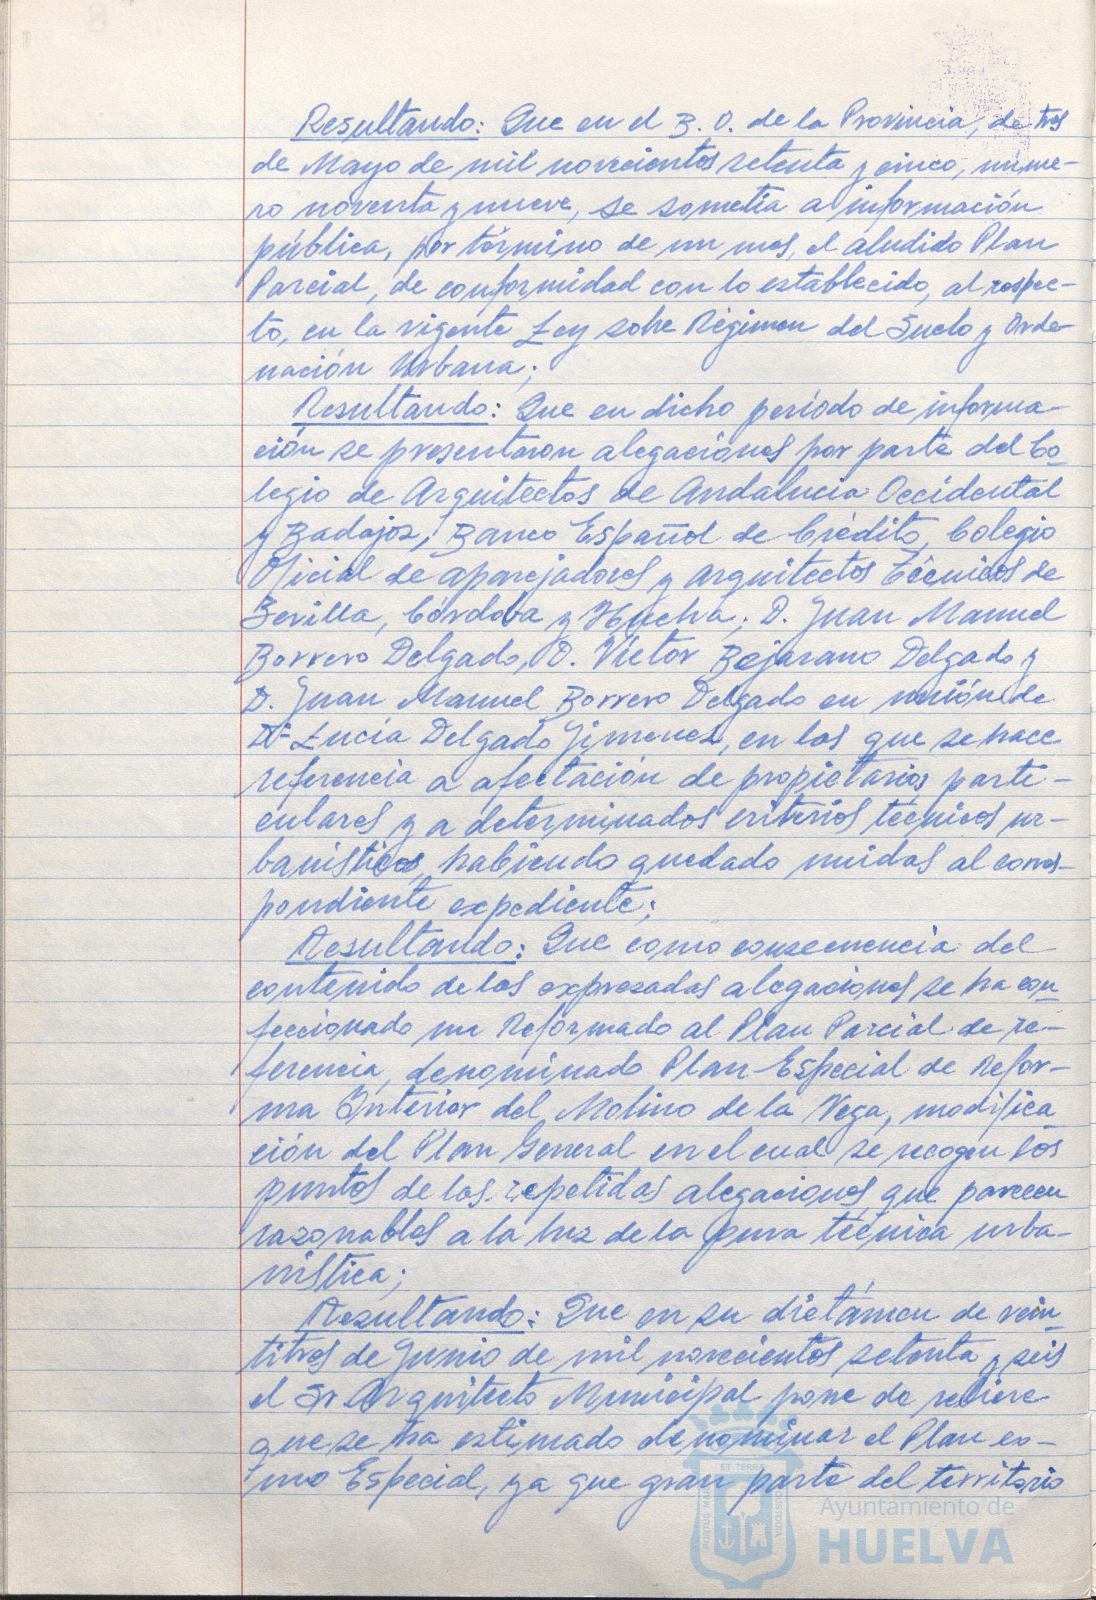 Resultando: Que en el B. O. de la Provincia, de tres
de Mayo de mil novecientos setenta y cinco, núme-
ro noventa y nueve, se sometía a información
pública, por término de un mes, el aludido Plan
Parcial, de conformidad con lo establecido, al respec-
to, en la vigente Ley sobre Régimen del Suelo y Orde-
nación Urbana;
Resultando: Que en dicho período de informa-
ción se presentaron alegaciones por parte del Co-
legio de Arquitectos de Andalucia Occidental
y Badajoz, Banco Español de Crédito, Colegio
Oficial de aparejadores y arquitectos Técnicos de
Sevilla, Córdoba y Huelva; D. Juan Manuel
Borrero Delgado, D. Víctor Bejarano Delgado y
D. Juan Manuel Borrero Delgado en unión de
Dª Lucía Delgado Jimenez, en las que se hace
referencia a afectación de propietarios parti-
culares y a determinados criterios técnicos ur-
banísticos, habiendo quedado unidas al corres-
pondiente expediente;
Resultando: Que como consecuencia del
contenido de las expresadas alegaciones se ha con-
feccionado un Reformado al Plan Parcial de re-
ferencia, denominado Plan Especial de Refor-
ma Interior del Molino de la Vega, modifica
ción del Plan General en el cual se recogen los
puntos de las repetidas alegaciones que parecen
razonables a la luz de la pura técnica urba-
nística;
Resultando: Que en su dictámen de vein-
titres de Junio de mil novecientos setenta y seis
el Sr Arquitecto Municipal pone de relieve
que se ha estimado denominar el Plan co-
mo Especial, ya que gran parte del territorio
ET TERRAE
PORTUS MARIS
CUSTODIA
Ayuntamiento de
HUELVA